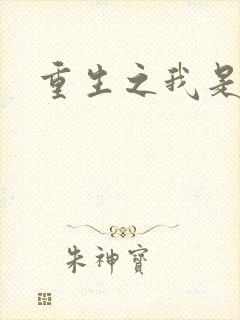 重生之我是
朱神寶